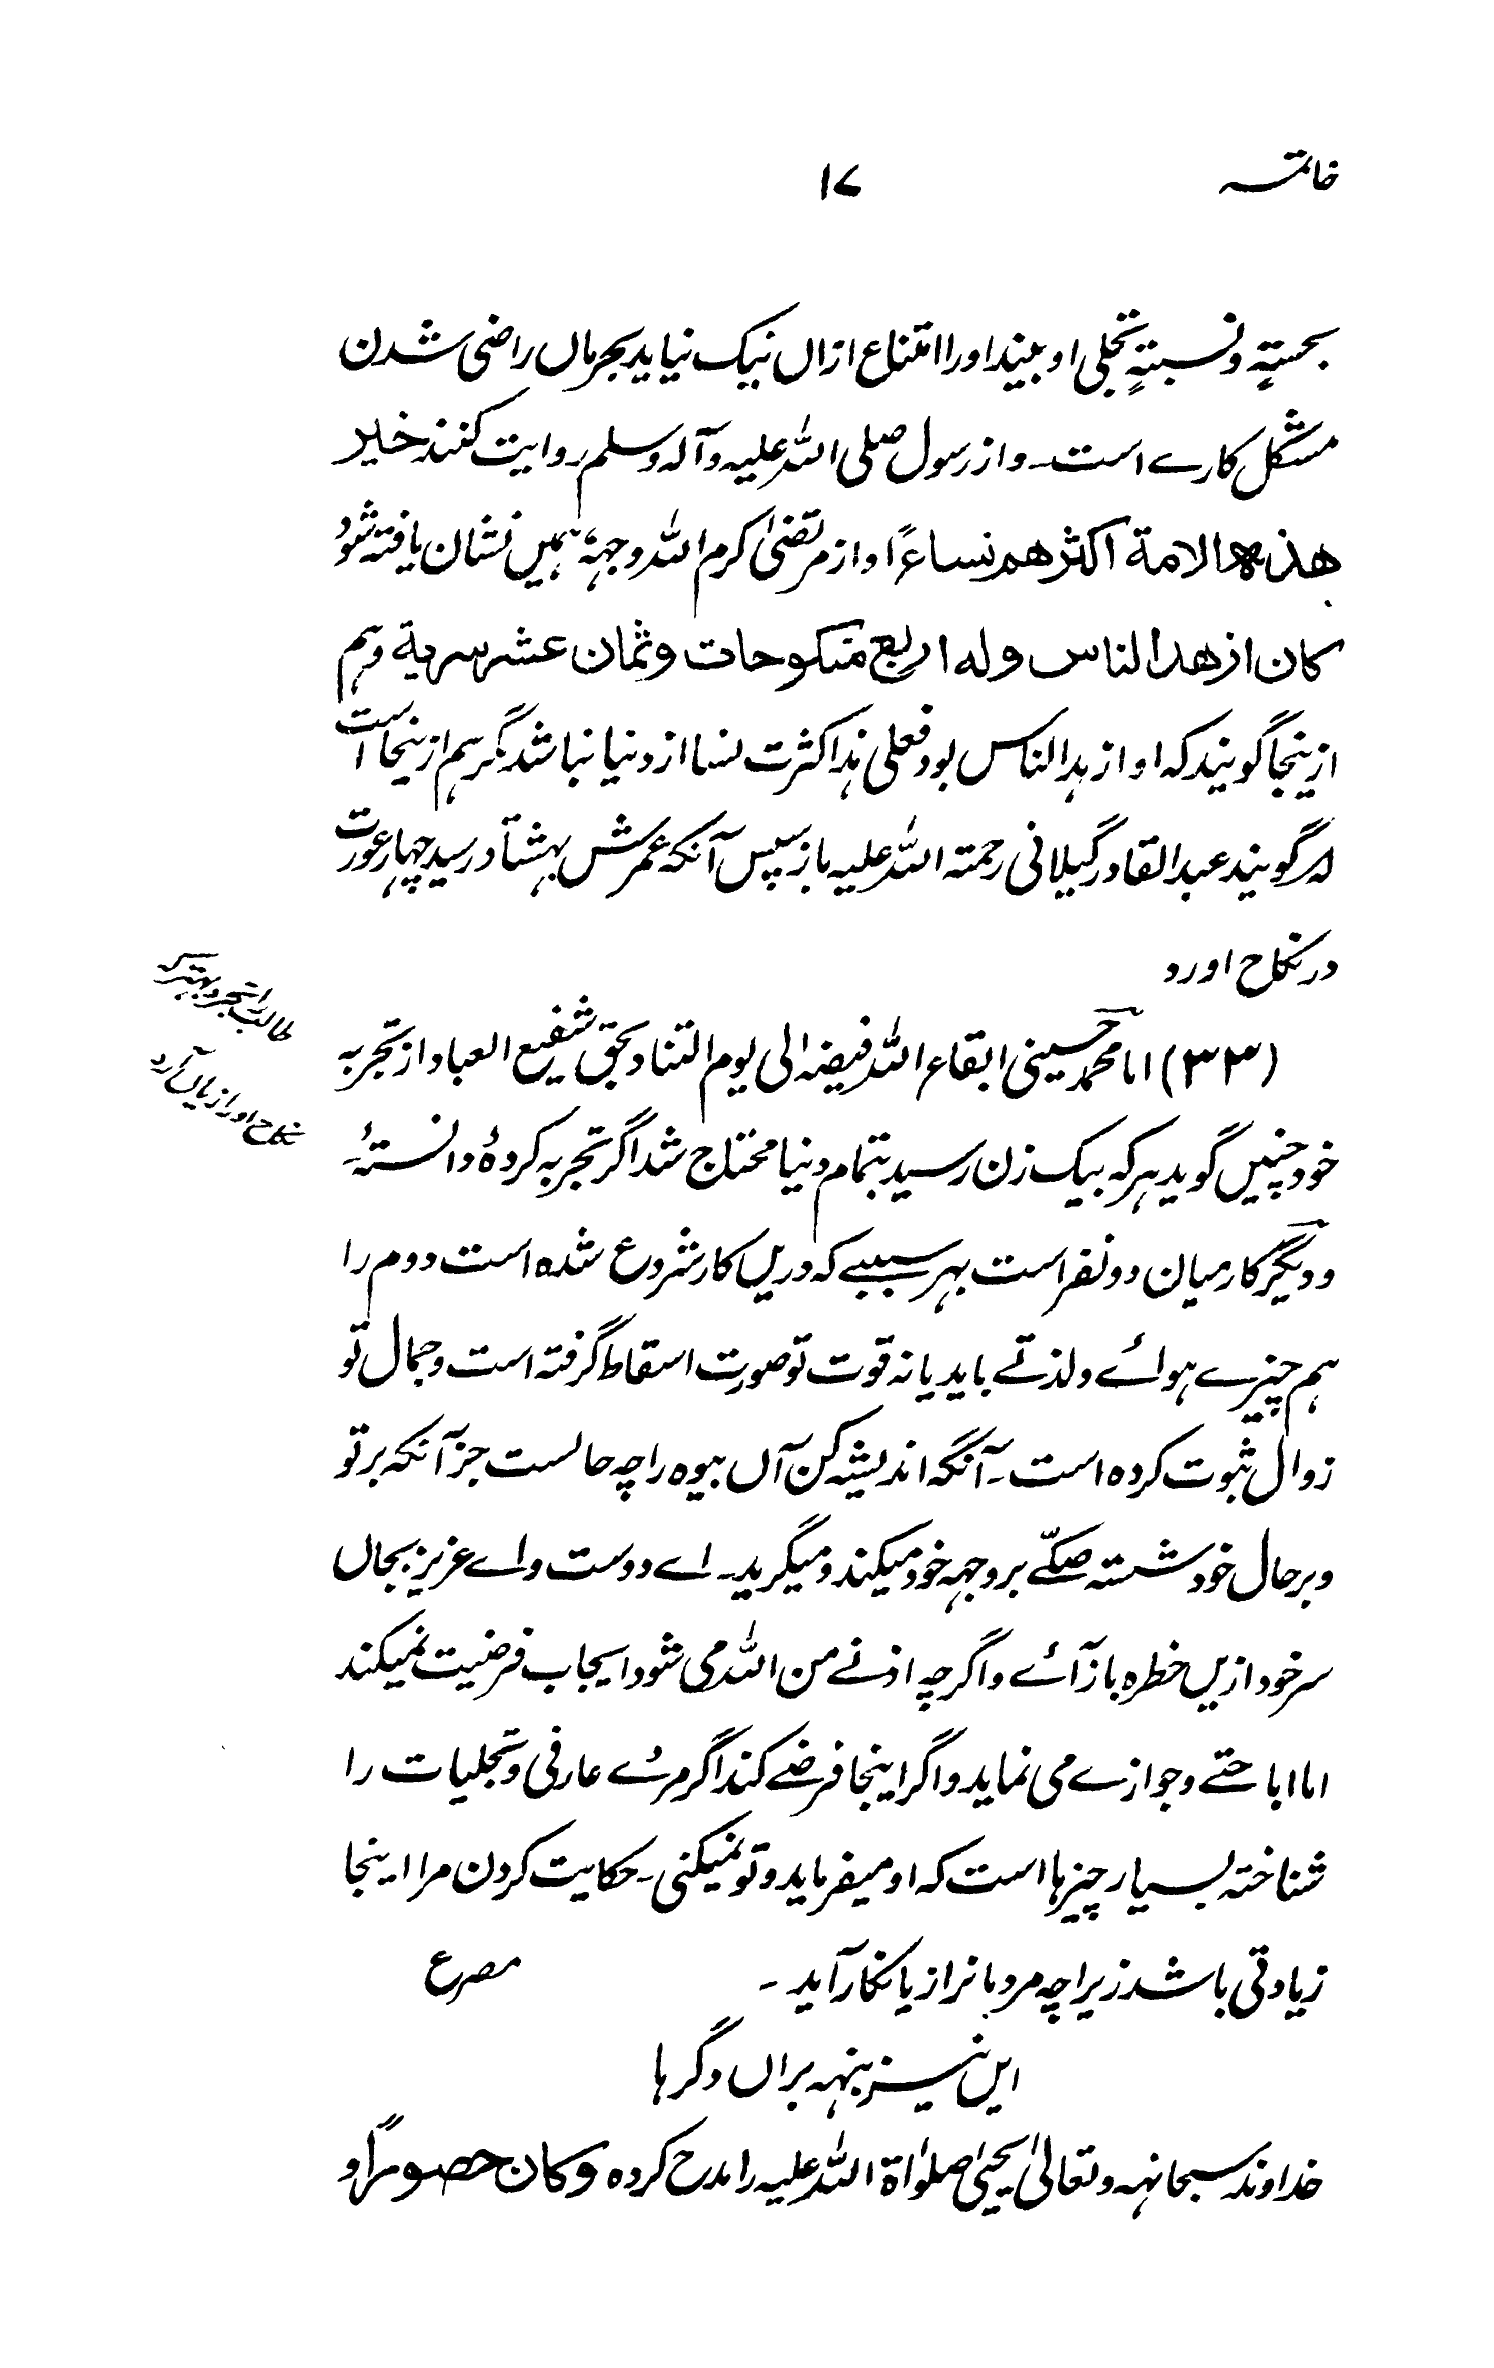 خاتمہ
۱۷
بجستہٖ ونسبتہٖ تجلی او بیند اورا امتناع ازاں نیک نیاید بحرماں راضی شدن
مشکل کارے است۔ واز رسول صلی اللہ علیہ وآلہ وسلم روایت کنند خیر
ھذہ الامة اکثرھم نساءً او از مرتضیٰ کرم اللہ وجہہٗ ہمیں نشان یافتہ شود
کان ازھد الناس ولہ اربع منکوحات وثمان عشر سریة وہم
ازینجا گویند کہ او ازہد الناس بود فعلی ہذا کثرت نسا از دنیا نباشد مگر ہم ازینجا است
کہ گویند عبد القادر گیلانی رحمتہ اللہ علیہ باز سپس آنکہ عمرش بہشتاد رسید چہار عورت
در نکاح اورد
(۳۳) اما محمد حسینی ابقاء اللہ فیضہ الی یوم التناد بحق شفیع العباد از تجربہ
خود چنیں گوید ہر کہ بیک زن رسید بتمام دنیا محتاج شد اگر تجربہ کردۂ دانستۂ۔
ودیگر کار میان دو نفر است بہر سببے کہ دریں کار شروع شدہ است دوم را
ہم چیزے ہوائے ولذتے باید یا نہ قوت تو صورت اسقاط گرفتہ است وجمال تو
زوال ثبوت کردہ است۔ آنگہ اندیشہ کن آں بیوہ را چہ حالست جز آنکہ بر تو
وبرحال خود شستہ صکّے بر وجہہ خود میکند ومیگرید۔ اے دوست واے عزیز بجاں
سر خود ازیں خطرہ باز آئے واگرچہ اذنے من اللہ می شود ایجاب فرضیت نمیکند
اما اباحتے وجوازے می نماید واگر اینجا فرضے کند اگر مردے عارفی وتجلیات را
شناختہ بسیار چیزہا است کہ او میفرماید وتو نمیکنی۔ حکایت کردن مرا اینجا
زیادتی باشد زیراچہ مردمانرا زیانکار آید۔ مصرع
ایں نیز بنہہ براں دگرہا
خداوند سبحانہہ وتعالیٰ یحییٰ صلوٰاة اللہ علیہ را مدح کردہ وکان حصوراً و
طالب را تجرد بہتر کہ
نکاح اورا زیاں آرد